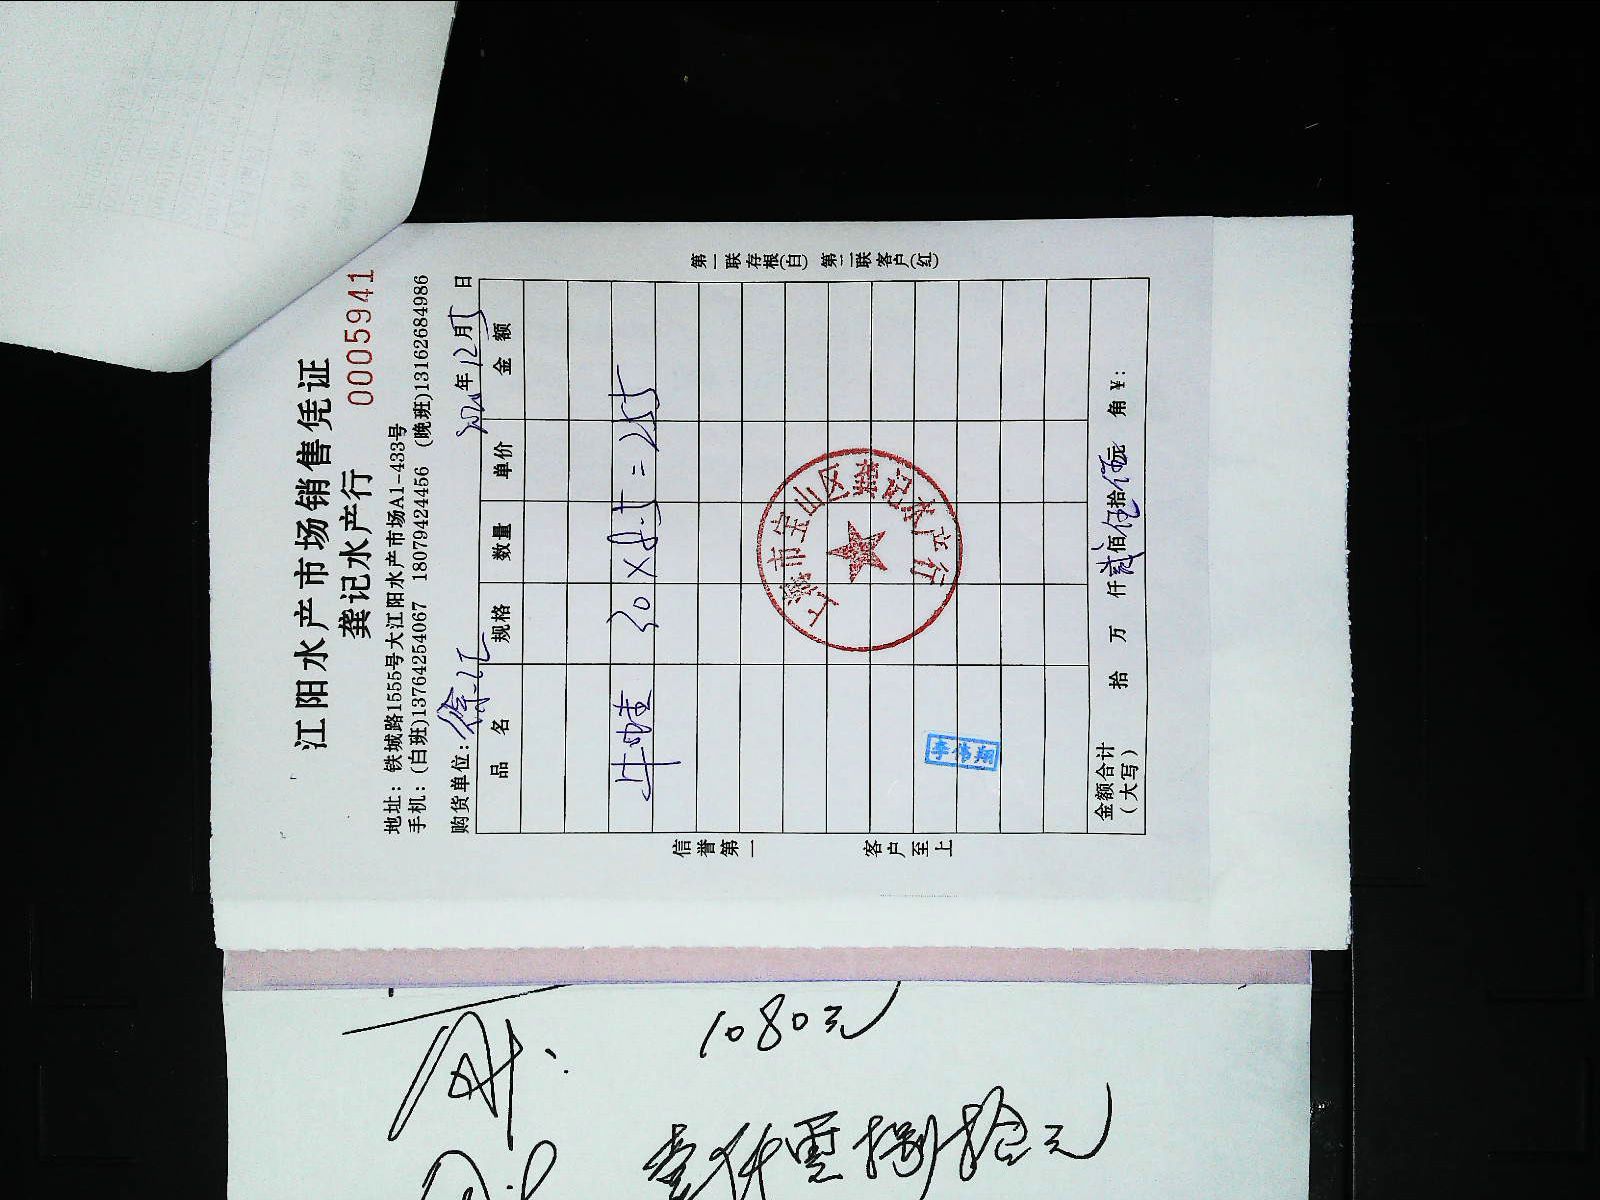 江阳水产市场销售凭证
龚记水产行
0005941
地址：铁城路1555号大江阳水产市场A1-433号
手机：(白班)13764254067 18079424456 (晚班)13162684986
购货单位：徐汇 年12月5日
品名 规格 数量 单价 金额
牛蛙 30×8.5=255
上海市宝山区龚记水产行
金额合计（大写） 拾 万 仟贰佰伍拾伍元 角 ¥：
第一联存根(白) 第二联客户(红)
信誉第一 客户至上
1080元
壹仟零捌拾元